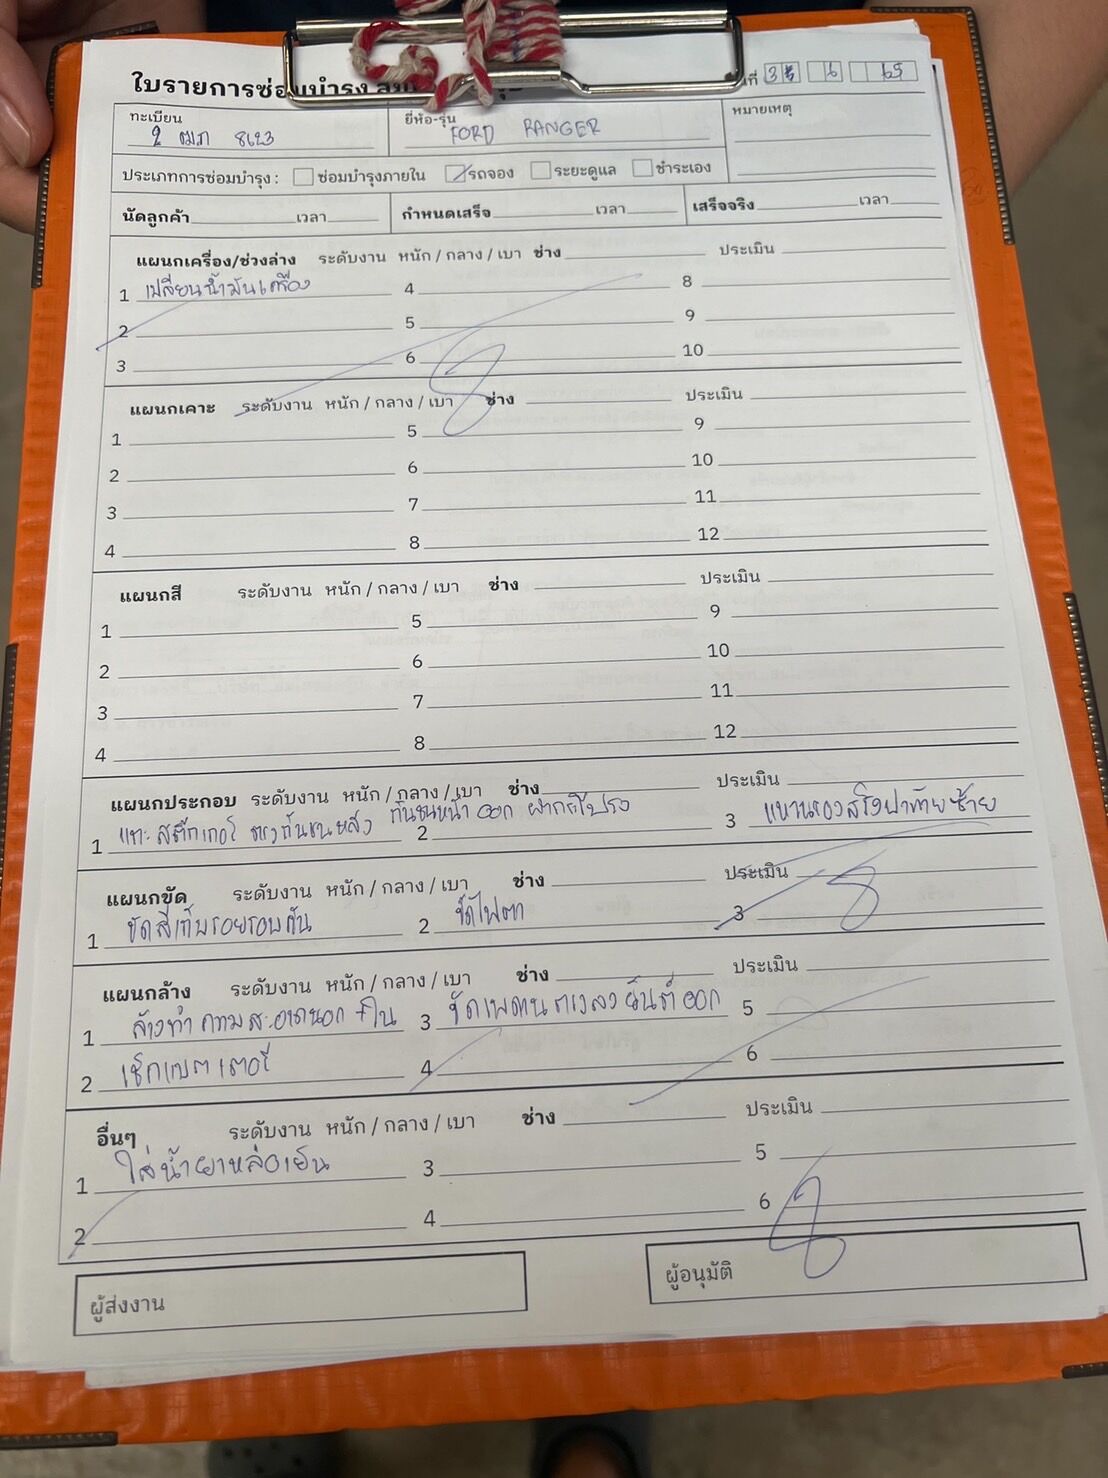 ใบรายการซ่อมบำรุง
ที่ 6 69
ทะเบียน 2 ฒภ 8623
ยี่ห้อ-รุ่น FORD RANGER
หมายเหตุ
ประเภทการซ่อมบำรุง : ซ่อมบำรุงภายใน รถจอง ระยะดูแล ชำระเอง
นัดลูกค้า เวลา กำหนดเสร็จ เวลา เสร็จจริง เวลา
แผนกเครื่อง/ช่วงล่าง ระดับงาน หนัก / กลาง / เบา ช่าง ประเมิน
1 เปลี่ยนน้ำมันเครื่อง 4 8
2 5 9
3 6 10
แผนกเคาะ ระดับงาน หนัก / กลาง / เบา ช่าง ประเมิน
1 5 9
2 6 10
3 7 11
4 8 12
แผนกสี ระดับงาน หนัก / กลาง / เบา ช่าง ประเมิน
1 5 9
2 6 10
3 7 11
4 8 12
แผนกประกอบ ระดับงาน หนัก / กลาง / เบา ช่าง ประเมิน
1 แกะสติ๊กเกอร์ ตรงกันชนหลัง กันชนหน้า ออก ฝากระโปรง 2 3 แหวนรองสริงฝาท้ายซ้าย
แผนกขัด ระดับงาน หนัก / กลาง / เบา ช่าง ประเมิน
1 ขัดสีเก็บรอยรอบคัน 2 ขัดไฟตา 3
แผนกล้าง ระดับงาน หนัก / กลาง / เบา ช่าง ประเมิน
1 ล้างทำความสะอาดนอก+ใน 3 ขัดเพดานตรงลงยันต์ออก 5
2 เช็กแบตเตอรี่ 4 6
อื่นๆ ระดับงาน หนัก / กลาง / เบา ช่าง ประเมิน
1 ใส่น้ำยาหล่อเย็น 3 5
2 4 6
ผู้ส่งงาน ผู้อนุมัติ